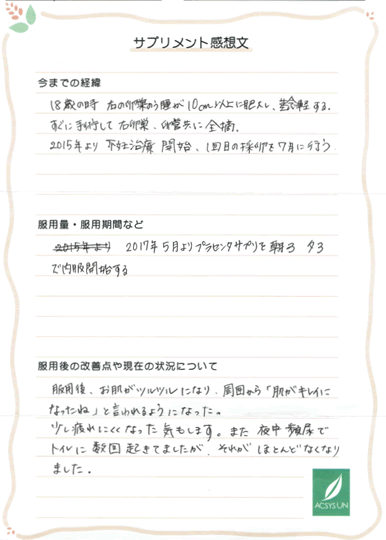 サプリメント感想文
今までの経緯
18歳の時 右の卵巣の腫が10cm以上に肥大し、茎捻転する。
すぐに手術して右卵巣、卵管共に全摘。
2015年より 不妊治療 開始、1回目の採卵を7月に行う
服用量・服用期間など
2015年より 2017年5月よりプラセンタサプリを朝3 夕3
で内服開始する
服用後の改善点や現在の状況について
服用後、お肌がツルツルになり、周囲から「肌がキレイに
なったね」と言われるようになった。
少し疲れにくくなった気もします。また 夜中 頻尿で
トイレに数回起きてましたが、それが ほとんどなくなり
ました。
ACSYSUN